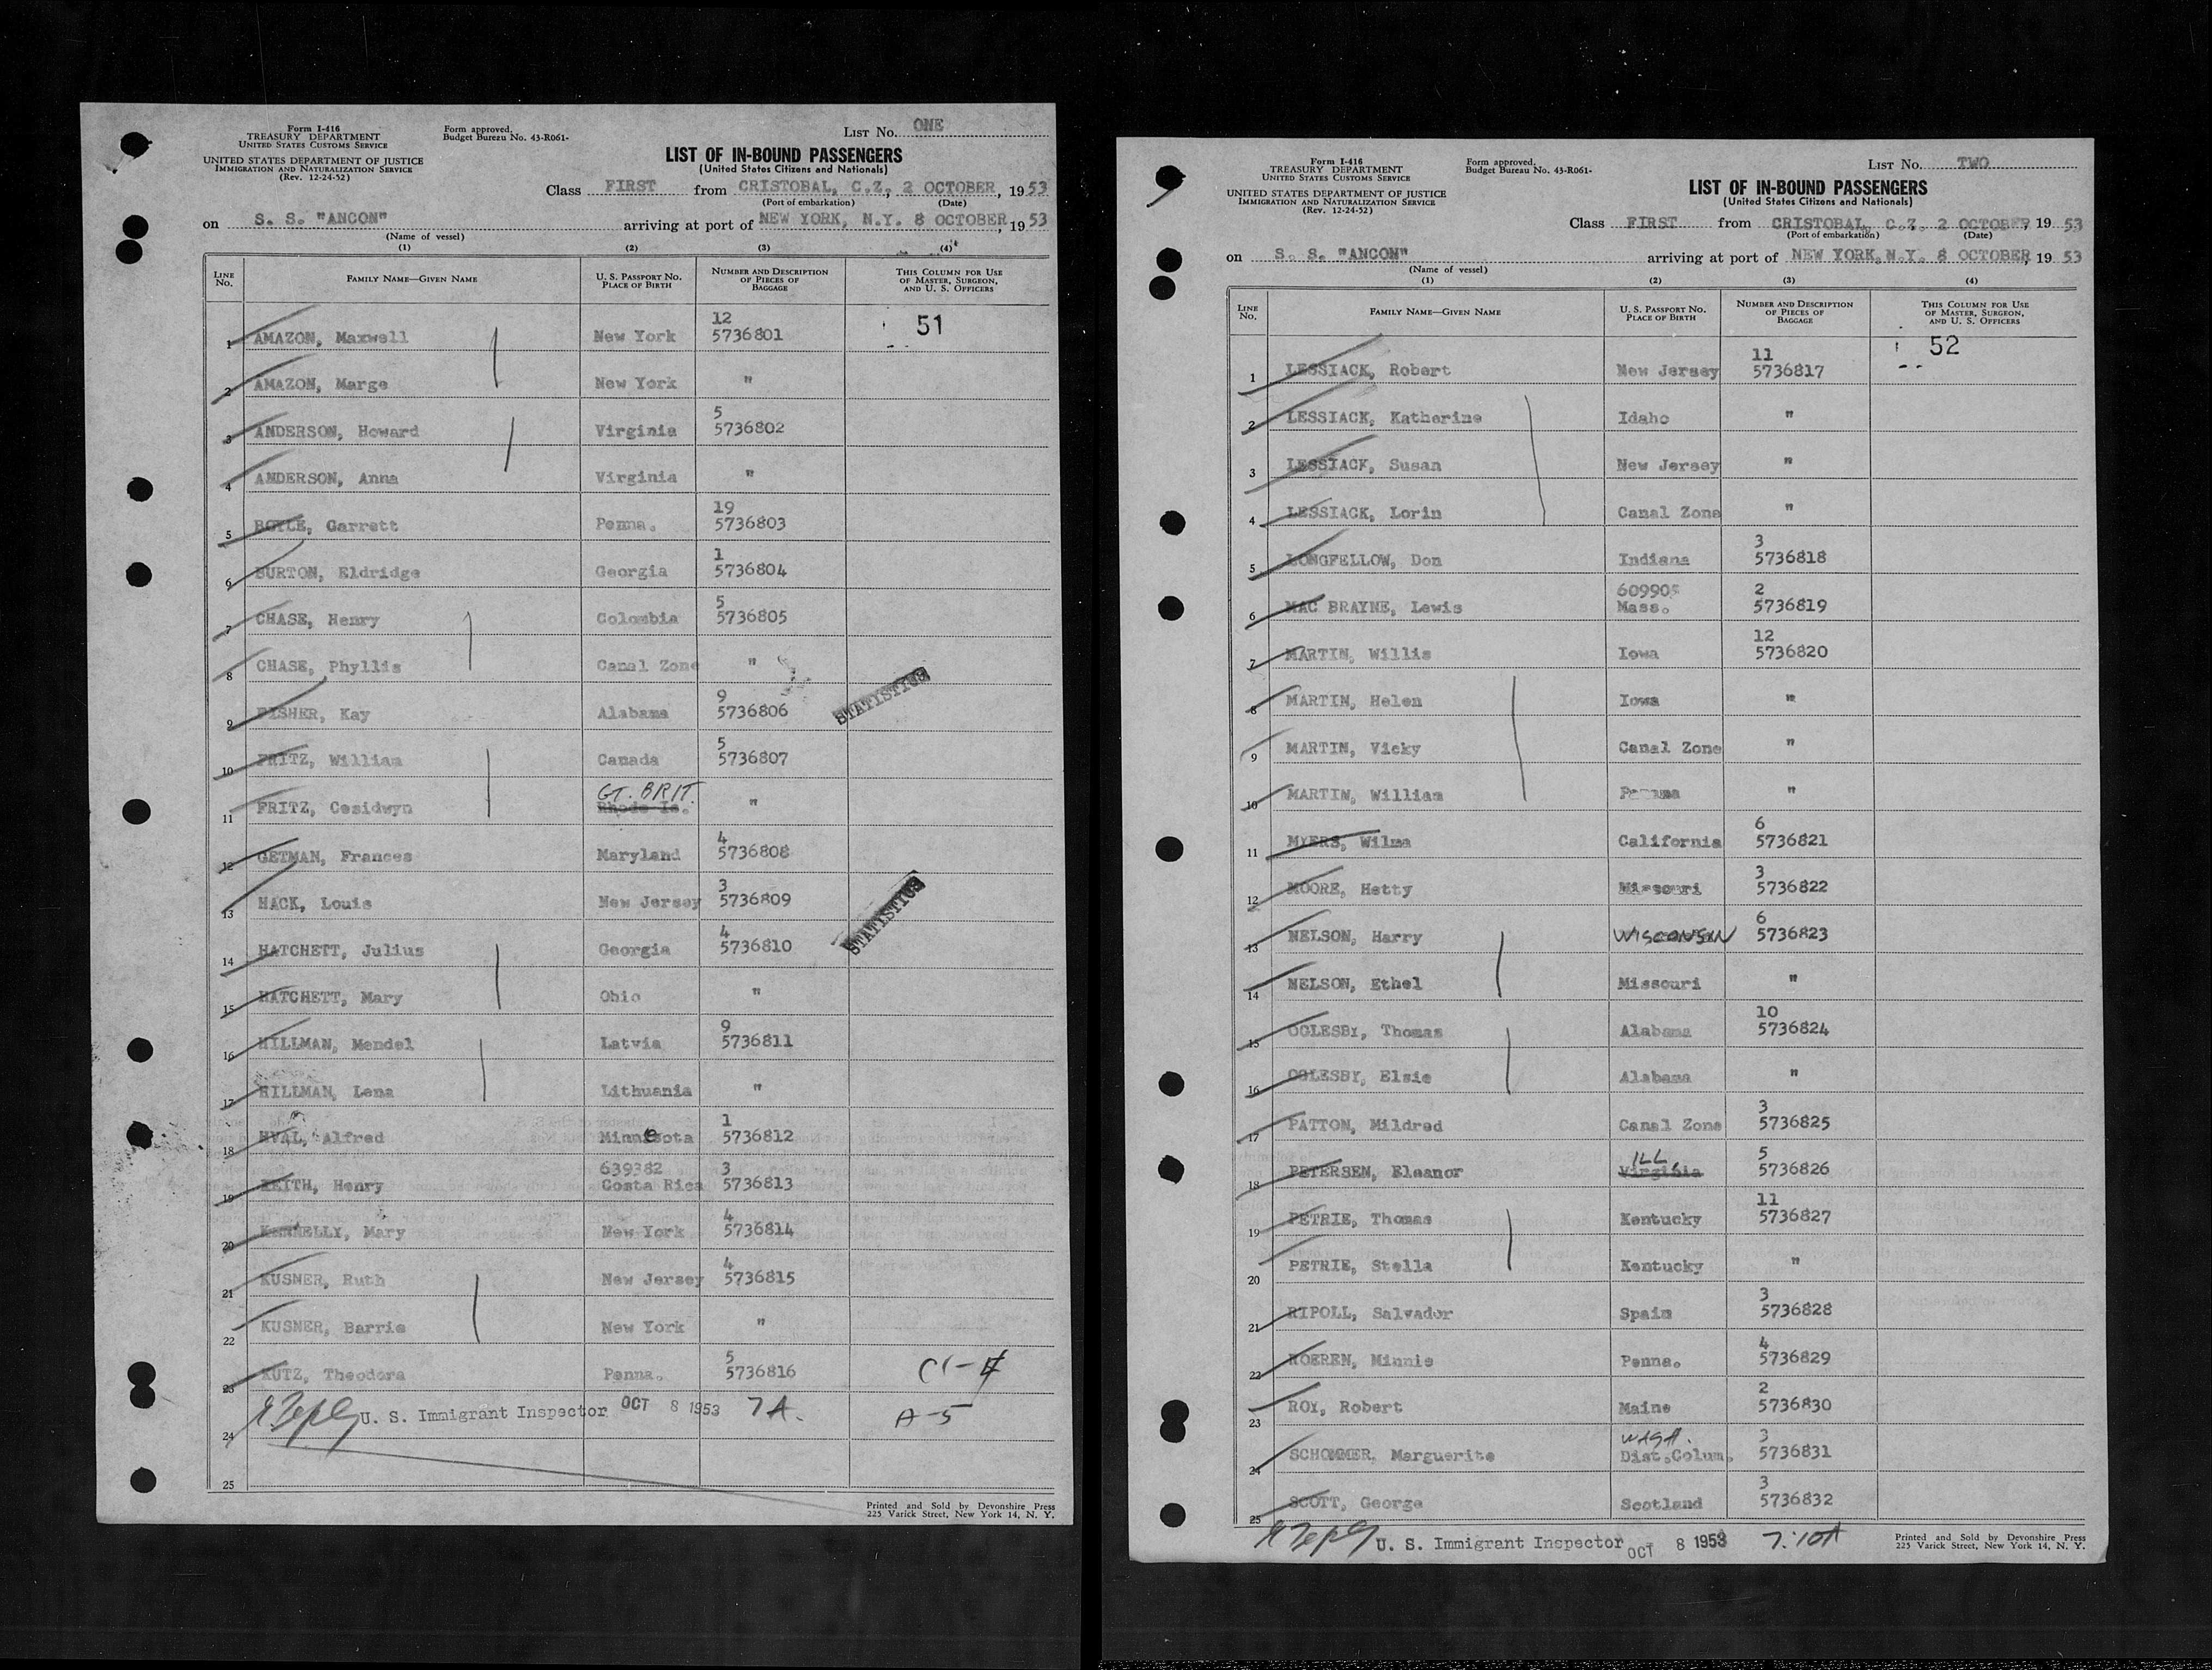 Form I-416
TREASURY DEPARTMENT
UNITED STATES CUSTOMS SERVICE
UNITED STATES DEPARTMENT OF JUSTICE
IMMIGRATION AND NATURALIZATION SERVICE
(Rev. 12-24-52)
Form approved.
Budget Bureau No. 43-R061-
LIST No. ONE
LIST OF IN-BOUND PASSENGERS
(United States Citizens and Nationals)
Class FIRST from CRISTOBAL, C.Z. 2 OCTOBER, 1953
(Port of embarkation) (Date)
on S. S. "ANCON" arriving at port of NEW YORK, N.Y. 8 OCTOBER, 1953
(Name of vessel)
(1) (2) (3) (4)
LINE No. FAMILY NAME—GIVEN NAME U. S. PASSPORT No. PLACE OF BIRTH NUMBER AND DESCRIPTION OF PIECES OF BAGGAGE THIS COLUMN FOR USE OF MASTER, SURGEON, AND U. S. OFFICERS
1 AMAZON, Maxwell New York 12 5736801 51
2 AMAZON, Marge New York "
3 ANDERSON, Howard Virginia 5 5736802
4 ANDERSON, Anna Virginia "
5 BOYLE, Garrett Penna. 19 5736803
6 BURTON, Eldridge Georgia 1 5736804
7 CHASE, Henry Colombia 5 5736805
8 CHASE, Phyllis Canal Zone "
9 FISHER, Kay Alabama 9 5736806 STATISTICS
10 FRITZ, William Canada 5 5736807
11 FRITZ, Cesidwyn GT. BRIT. Rhode Is. "
12 GETMAN, Frances Maryland 4 5736808
13 HACK, Louis New Jersey 3 5736809
14 HATCHETT, Julius Georgia 4 5736810 STATISTICS
15 HATCHETT, Mary Ohio "
16 HILLMAN, Mendel Latvia 9 5736811
17 HILLMAN, Lena Lithuania "
18 HVAL, Alfred Minnesota 1 5736812
19 KEITH, Henry 639382 Costa Rica 3 5736813
20 KENNELLY, Mary New York 4 5736814
21 KUSNER, Ruth New Jersey 4 5736815
22 KUSNER, Barrie New York "
23 KUTZ, Theodora Penna. 5 5736816
24 U. S. Immigrant Inspector OCT 8 1953 7 A. A-5
25
Printed and Sold by Devonshire Press
225 Varick Street, New York 14, N. Y.
Form I-416
TREASURY DEPARTMENT
UNITED STATES CUSTOMS SERVICE
UNITED STATES DEPARTMENT OF JUSTICE
IMMIGRATION AND NATURALIZATION SERVICE
(Rev. 12-24-52)
Form approved.
Budget Bureau No. 43-R061-
LIST No. TWO
LIST OF IN-BOUND PASSENGERS
(United States Citizens and Nationals)
Class FIRST from CRISTOBAL, C.Z. 2 OCTOBER, 1953
(Port of embarkation) (Date)
on S. S. "ANCON" arriving at port of NEW YORK, N.Y. 8 OCTOBER, 1953
(Name of vessel)
(1) (2) (3) (4)
LINE No. FAMILY NAME—GIVEN NAME U. S. PASSPORT No. PLACE OF BIRTH NUMBER AND DESCRIPTION OF PIECES OF BAGGAGE THIS COLUMN FOR USE OF MASTER, SURGEON, AND U. S. OFFICERS
1 LESSIACK, Robert New Jersey 11 5736817 52
2 LESSIACK, Katherine Idaho "
3 LESSIACK, Susan New Jersey "
4 LESSIACK, Lorin Canal Zone "
5 LONGFELLOW, Don Indiana 3 5736818
6 MAC BRAYNE, Lewis 609905 Mass. 2 5736819
7 MARTIN, Willis Iowa 12 5736820
8 MARTIN, Helen Iowa "
9 MARTIN, Vicky Canal Zone "
10 MARTIN, William Panama "
11 MYERS, Wilma California 6 5736821
12 MOORE, Hetty Missouri 3 5736822
13 NELSON, Harry WISCONSIN 6 5736823
14 NELSON, Ethel Missouri "
15 OGLESBY, Thomas Alabama 10 5736824
16 OGLESBY, Elsie Alabama "
17 PATTON, Mildred Canal Zone 3 5736825
18 PETERSEN, Eleanor ILL Virginia 5 5736826
19 PETRIE, Thomas Kentucky 11 5736827
20 PETRIE, Stella Kentucky "
21 RIPOLL, Salvador Spain 3 5736828
22 ROEREN, Minnie Penna. 4 5736829
23 ROY, Robert Maine 2 5736830
24 SCHOMMER, Marguerite WASH. Dist.Colum. 3 5736831
25 SCOTT, George Scotland 3 5736832
U. S. Immigrant Inspector OCT 8 1953 7:10A
Printed and Sold by Devonshire Press
225 Varick Street, New York 14, N. Y.